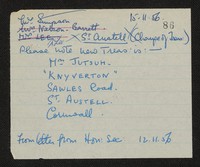 Mrs Simpson 15-11-56
Mrs Nelson-Garrett 86
Mrs St Austell (Change of Treas)
Please note new Treas: is-
Mrs JUTSUM.
"KNYVERTON"
SAWLES ROAD.
ST. AUSTELL.
Cornwall.
From letter from Hon: Sec 12.11.56